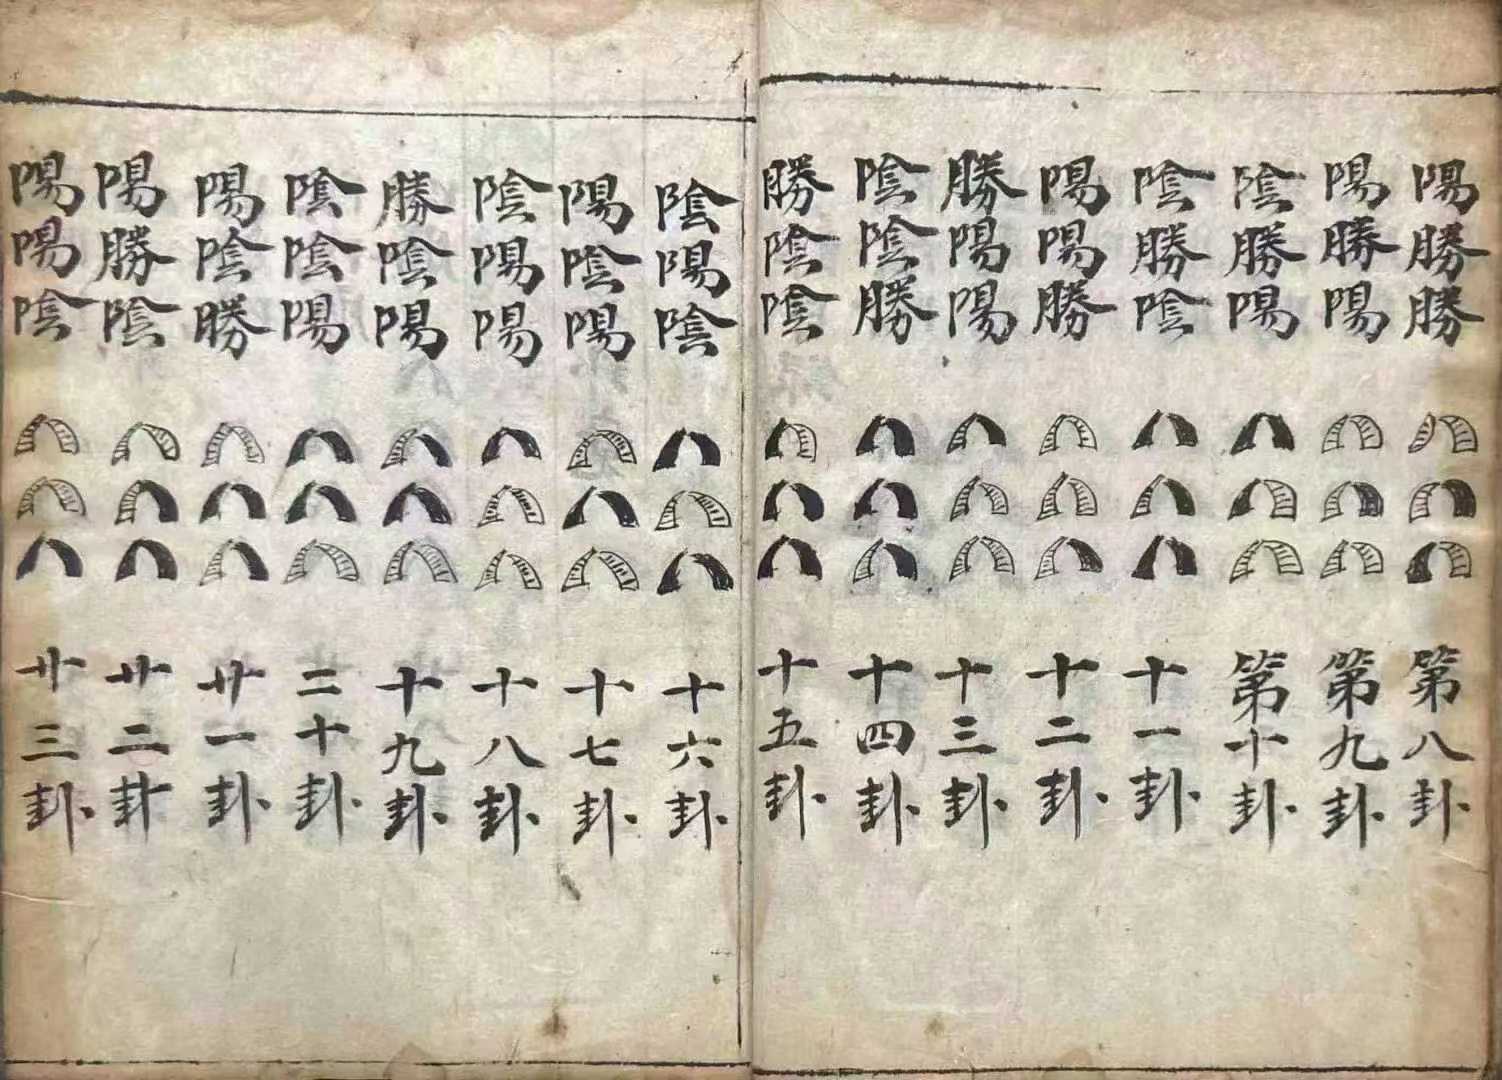 陽勝勝 第八卦
陽勝陽 第九卦
陰勝陽 第十卦
陰勝陰 十一卦
陽陽勝 十二卦
勝陽陽 十三卦
陰陰勝 十四卦
勝陰陰 十五卦
陰陽陰 十六卦
陽陰陽 十七卦
陰陽陽 十八卦
勝陰陽 十九卦
陰陰陽 二十卦
陽陰勝 廿一卦
陽勝陰 廿二卦
陽陽陰 廿三卦